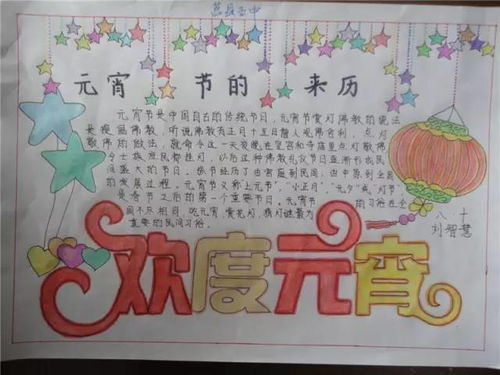 莒县五中
元宵节的来历
元宵节是中国自古的传统节日,元宵节赏灯佛教的说法
是提倡佛教,听说佛教有正月十五日僧人观佛舍利,点灯
敬佛的做法,就命令这一天夜晚在皇宫和寺庙里点灯敬佛
令士族庶民都挂灯,以后这种佛教礼仪节日逐渐形成民
间盛大的节日。该节经历了由宫庭到民间,由中原到全国
的发展过程。元宵节又称上元节","小正月","元夕"或"灯节"
是春节之后的第一个重要节日。元宵节的习俗在全
国不尽相同,吃元宵 赏花灯,猜灯谜最为
重要的民间习俗。
八十
刘智慧
欢度元宵